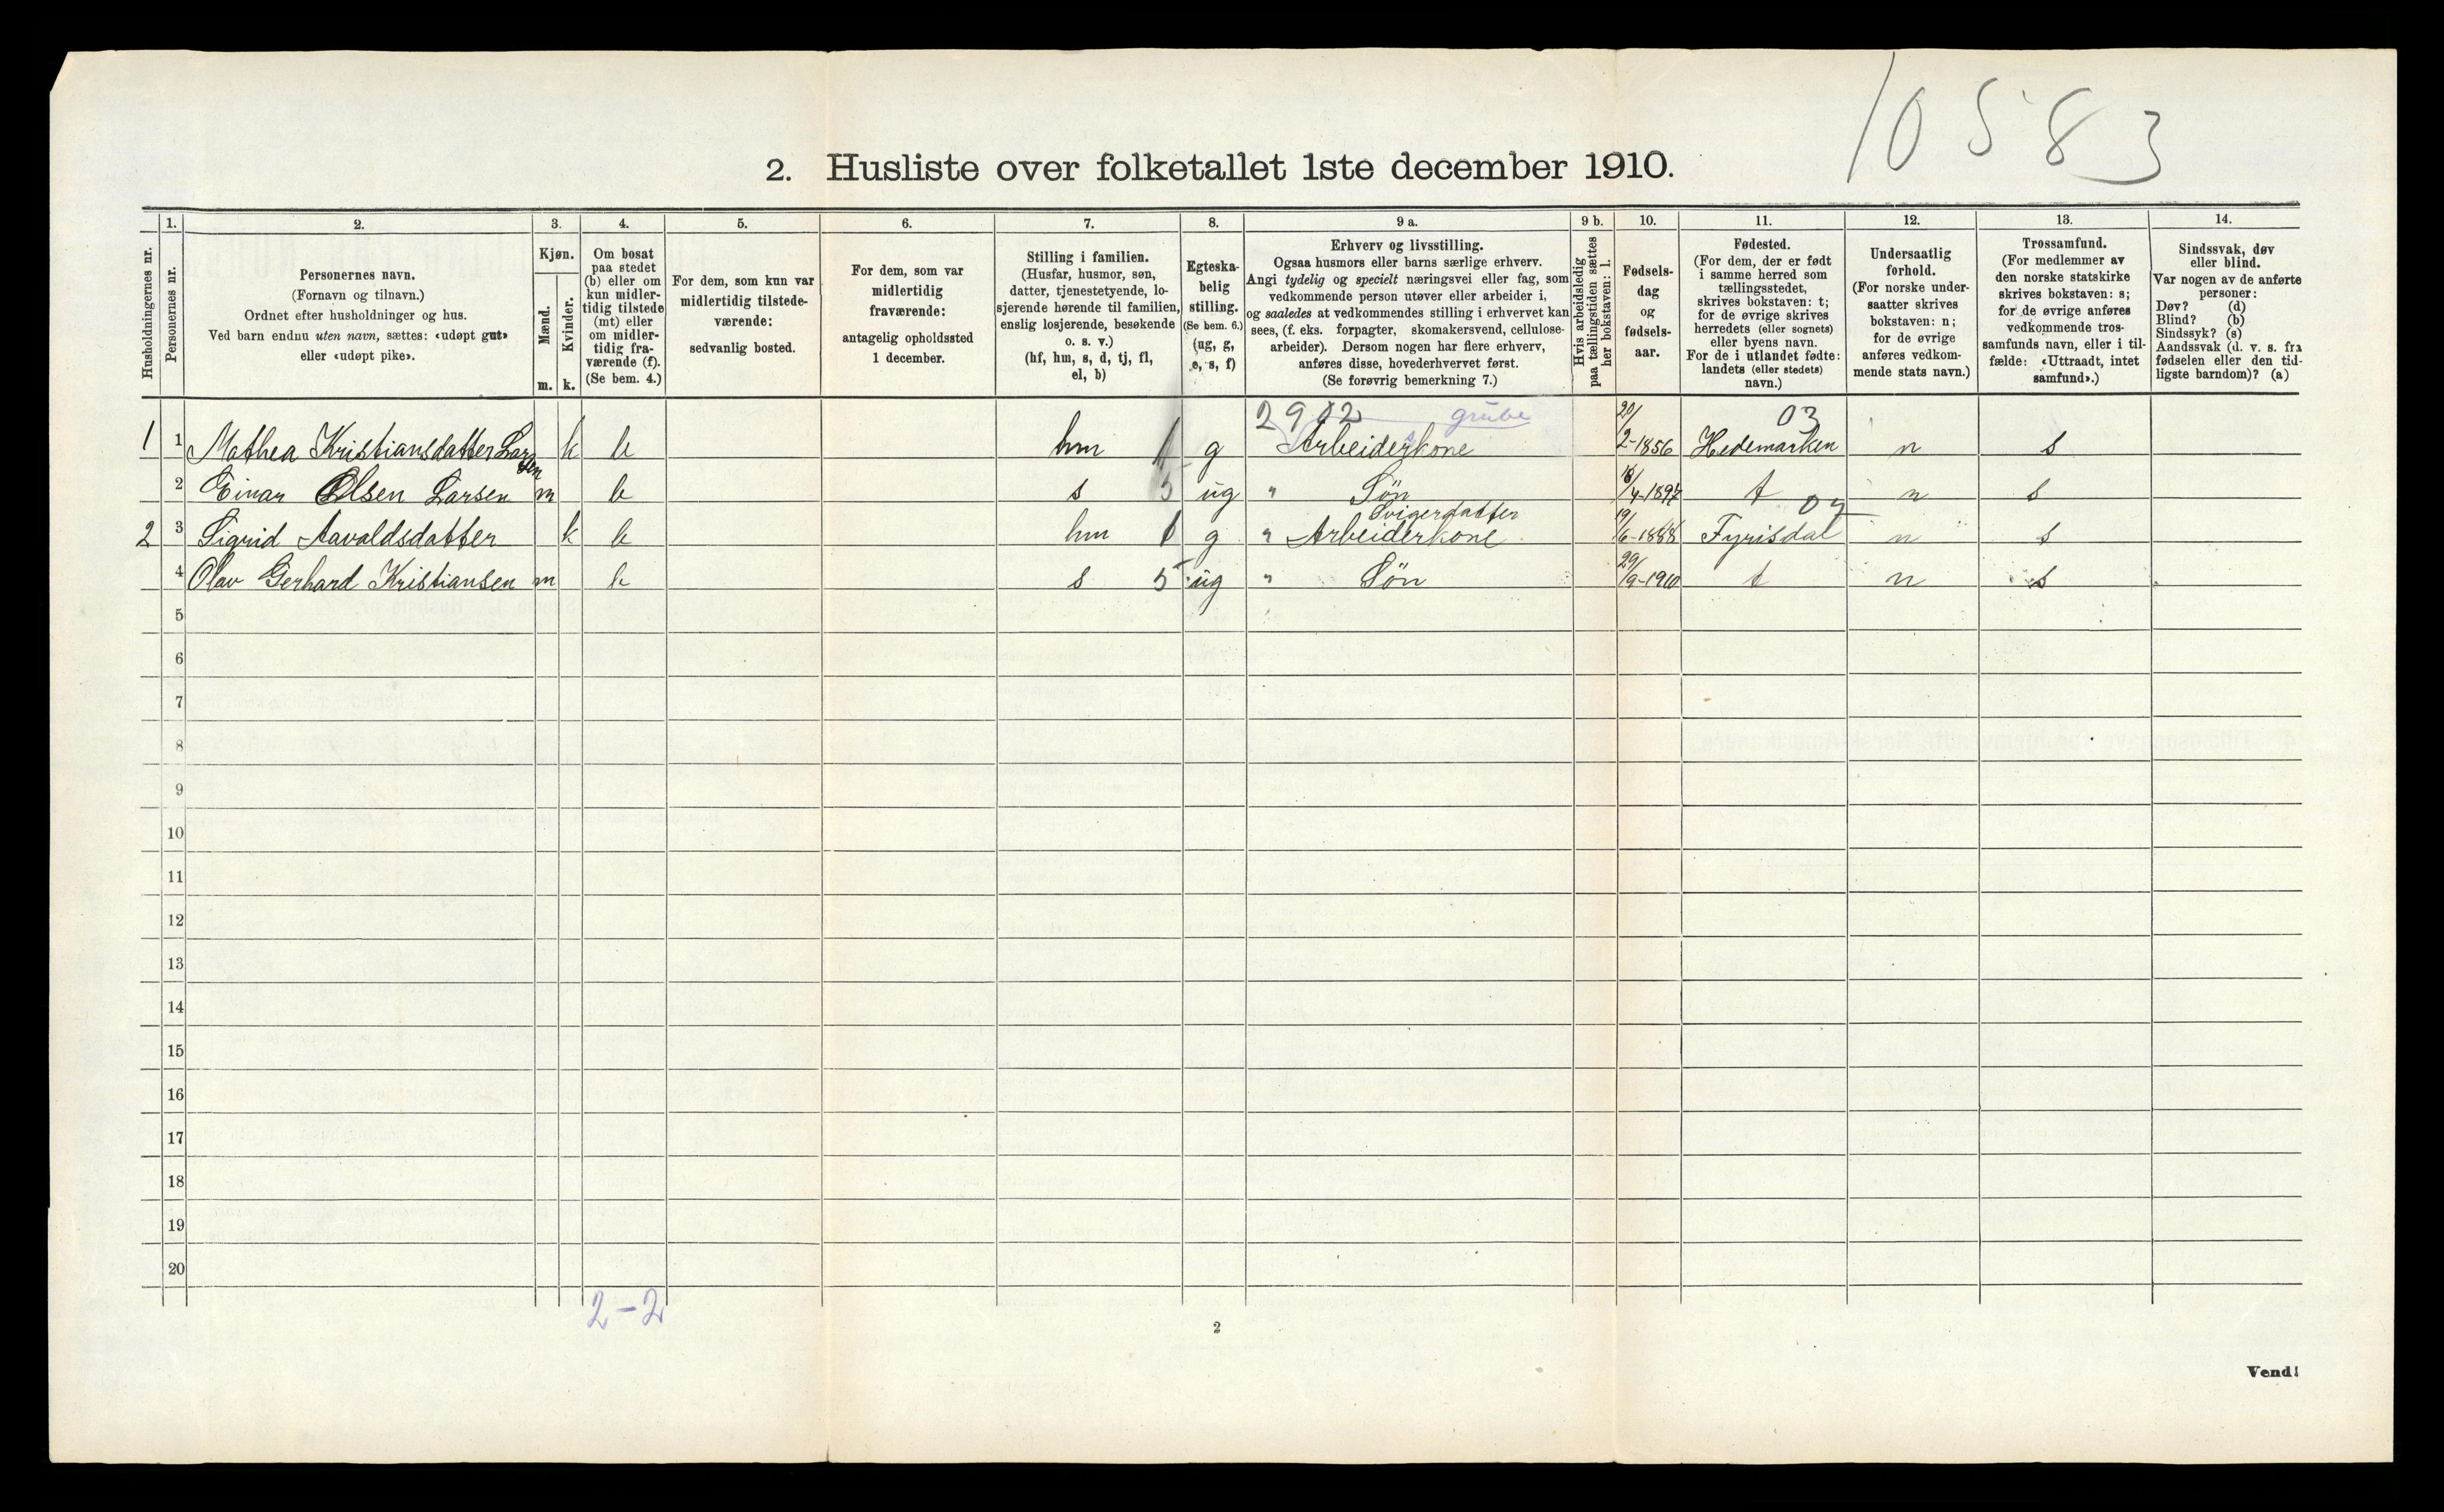 10583
2. Husliste over folketallet 1ste december 1910.
Husholdningernes nr.
1.
Personernes nr.
2.
Personernes navn.
(Fornavn og tilnavn.)
Ordnet efter husholdninger og hus.
Ved barn endnu uten navn, sættes: «udøpt gut»
eller «udøpt pike».
3.
Kjøn.
Mænd.
Kvinder.
m. k.
4.
Om bosat
paa stedet
(b) eller om
kun midler-
tidig tilstede
(mt) eller
om midler-
tidig fra-
værende (f).
(Se bem. 4.)
5.
For dem, som kun var
midlertidig tilstede-
værende:
sedvanlig bosted.
6.
For dem, som var
midlertidig
fraværende:
antagelig opholdssted
1 december.
7.
Stilling i familien.
(Husfar, husmor, søn,
datter, tjenestetyende, lo-
sjerende hørende til familien,
enslig losjerende, besøkende
o. s. v.)
(hf, hm, s, d, tj, fl,
el, b)
8.
Egteska-
belig
stilling.
(Se bem. 6.)
(ug, g,
e, s, f)
9 a.
Erhverv og livsstilling.
Ogsaa husmors eller barns særlige erhverv.
Angi tydelig og specielt næringsvei eller fag, som
vedkommende person utøver eller arbeider i,
og saaledes at vedkommendes stilling i erhvervet kan
sees, (f. eks. forpagter, skomakersvend, cellulose-
arbeider). Dersom nogen har flere erhverv,
anføres disse, hovederhvervet først.
(Se forøvrig bemerkning 7.)
9 b.
Hvis arbeidsledig
paa tællingstiden sættes
her bokstaven: l.
10.
Fødsels-
dag
og
fødsels-
aar.
11.
Fødested.
(For dem, der er født
i samme herred som
tællingsstedet,
skrives bokstaven: t;
for de øvrige skrives
herredets (eller sognets)
eller byens navn.
For de i utlandet fødte:
landets (eller stedets)
navn.)
12.
Undersaatlig
forhold.
(For norske under-
saatter skrives
bokstaven: n;
for de øvrige
anføres vedkom-
mende stats navn.)
13.
Trossamfund.
(For medlemmer av
den norske statskirke
skrives bokstaven: s;
for de øvrige anføres
vedkommende tros-
samfunds navn, eller i til-
fælde: «Uttraadt, intet
samfund».)
14.
Sindssvak, døv
eller blind.
Var nogen av de anførte
personer:
Døv? (d)
Blind? (b)
Sindssyk? (s)
Aandssvak (d. v. s. fra
fødselen eller den tid-
ligste barndom)? (a)
2902 grube 03
1 1 Mathea Kristiansdatter Larsen k b hm 1 g Arbeiderskone 20/2-1856 Hedemarken n s
2 Einar Olsen Larsen m b s 5 ug " Søn /4-1897 t n s
Svigerdatter 07
2 3 Sigrid Aavaldsdatter k b hm 1 g " Arbeiderkone 19/6-1888 Fyrisdal n s
4 Olav Gerhard Kristiansen m b s 5 ug " Søn 29/9-1910 t n s
5
6
7
8
9
10
11
12
13
14
15
16
17
18
19
20
2-2
2
Vend!